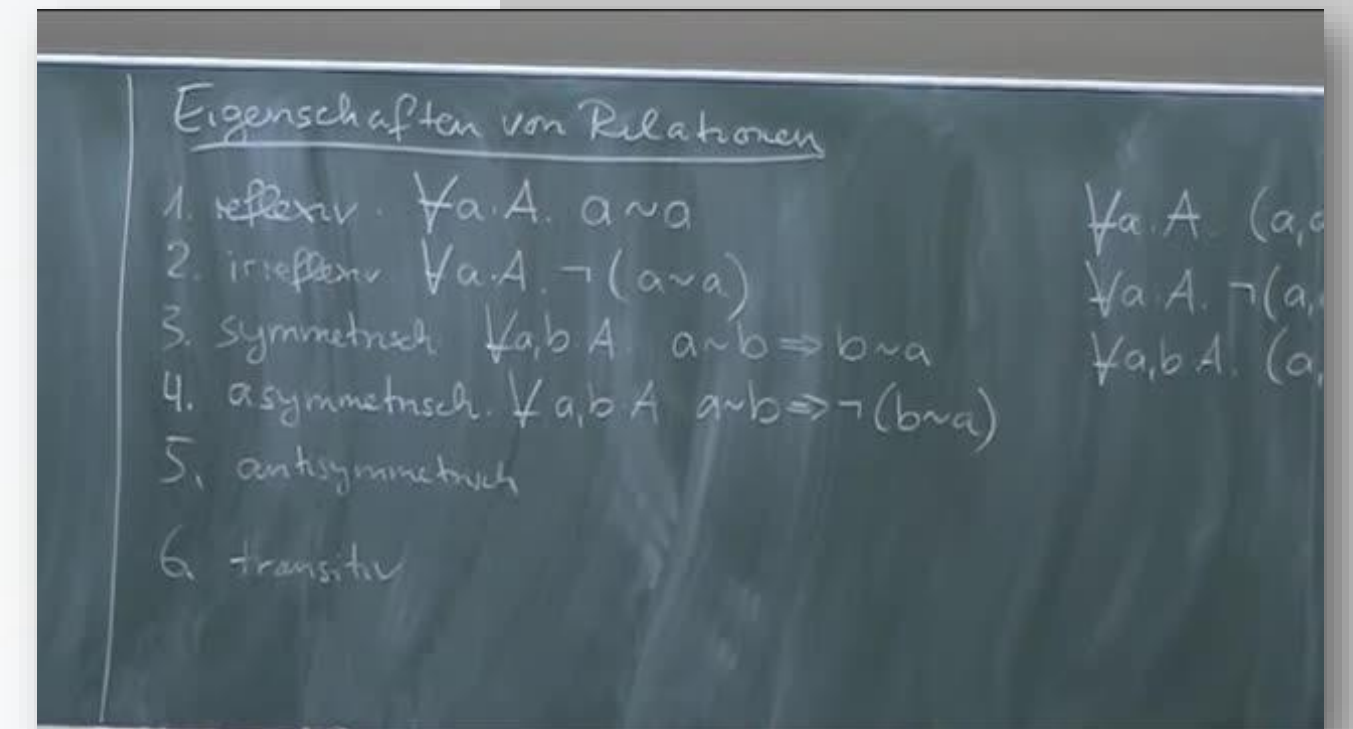 Eigenschaften von Relationen
1. reflexiv. ∀a:A. a~a
2. irreflexiv ∀a:A. ¬(a~a)
3. symmetrisch ∀a,b:A. a~b ⇒ b~a
4. asymmetrisch. ∀a,b:A a~b ⇒ ¬(b~a)
5. antisymmetrisch
6. transitiv
∀a:A. (a,a
∀a:A. ¬(a,
∀a,b:A. (a,